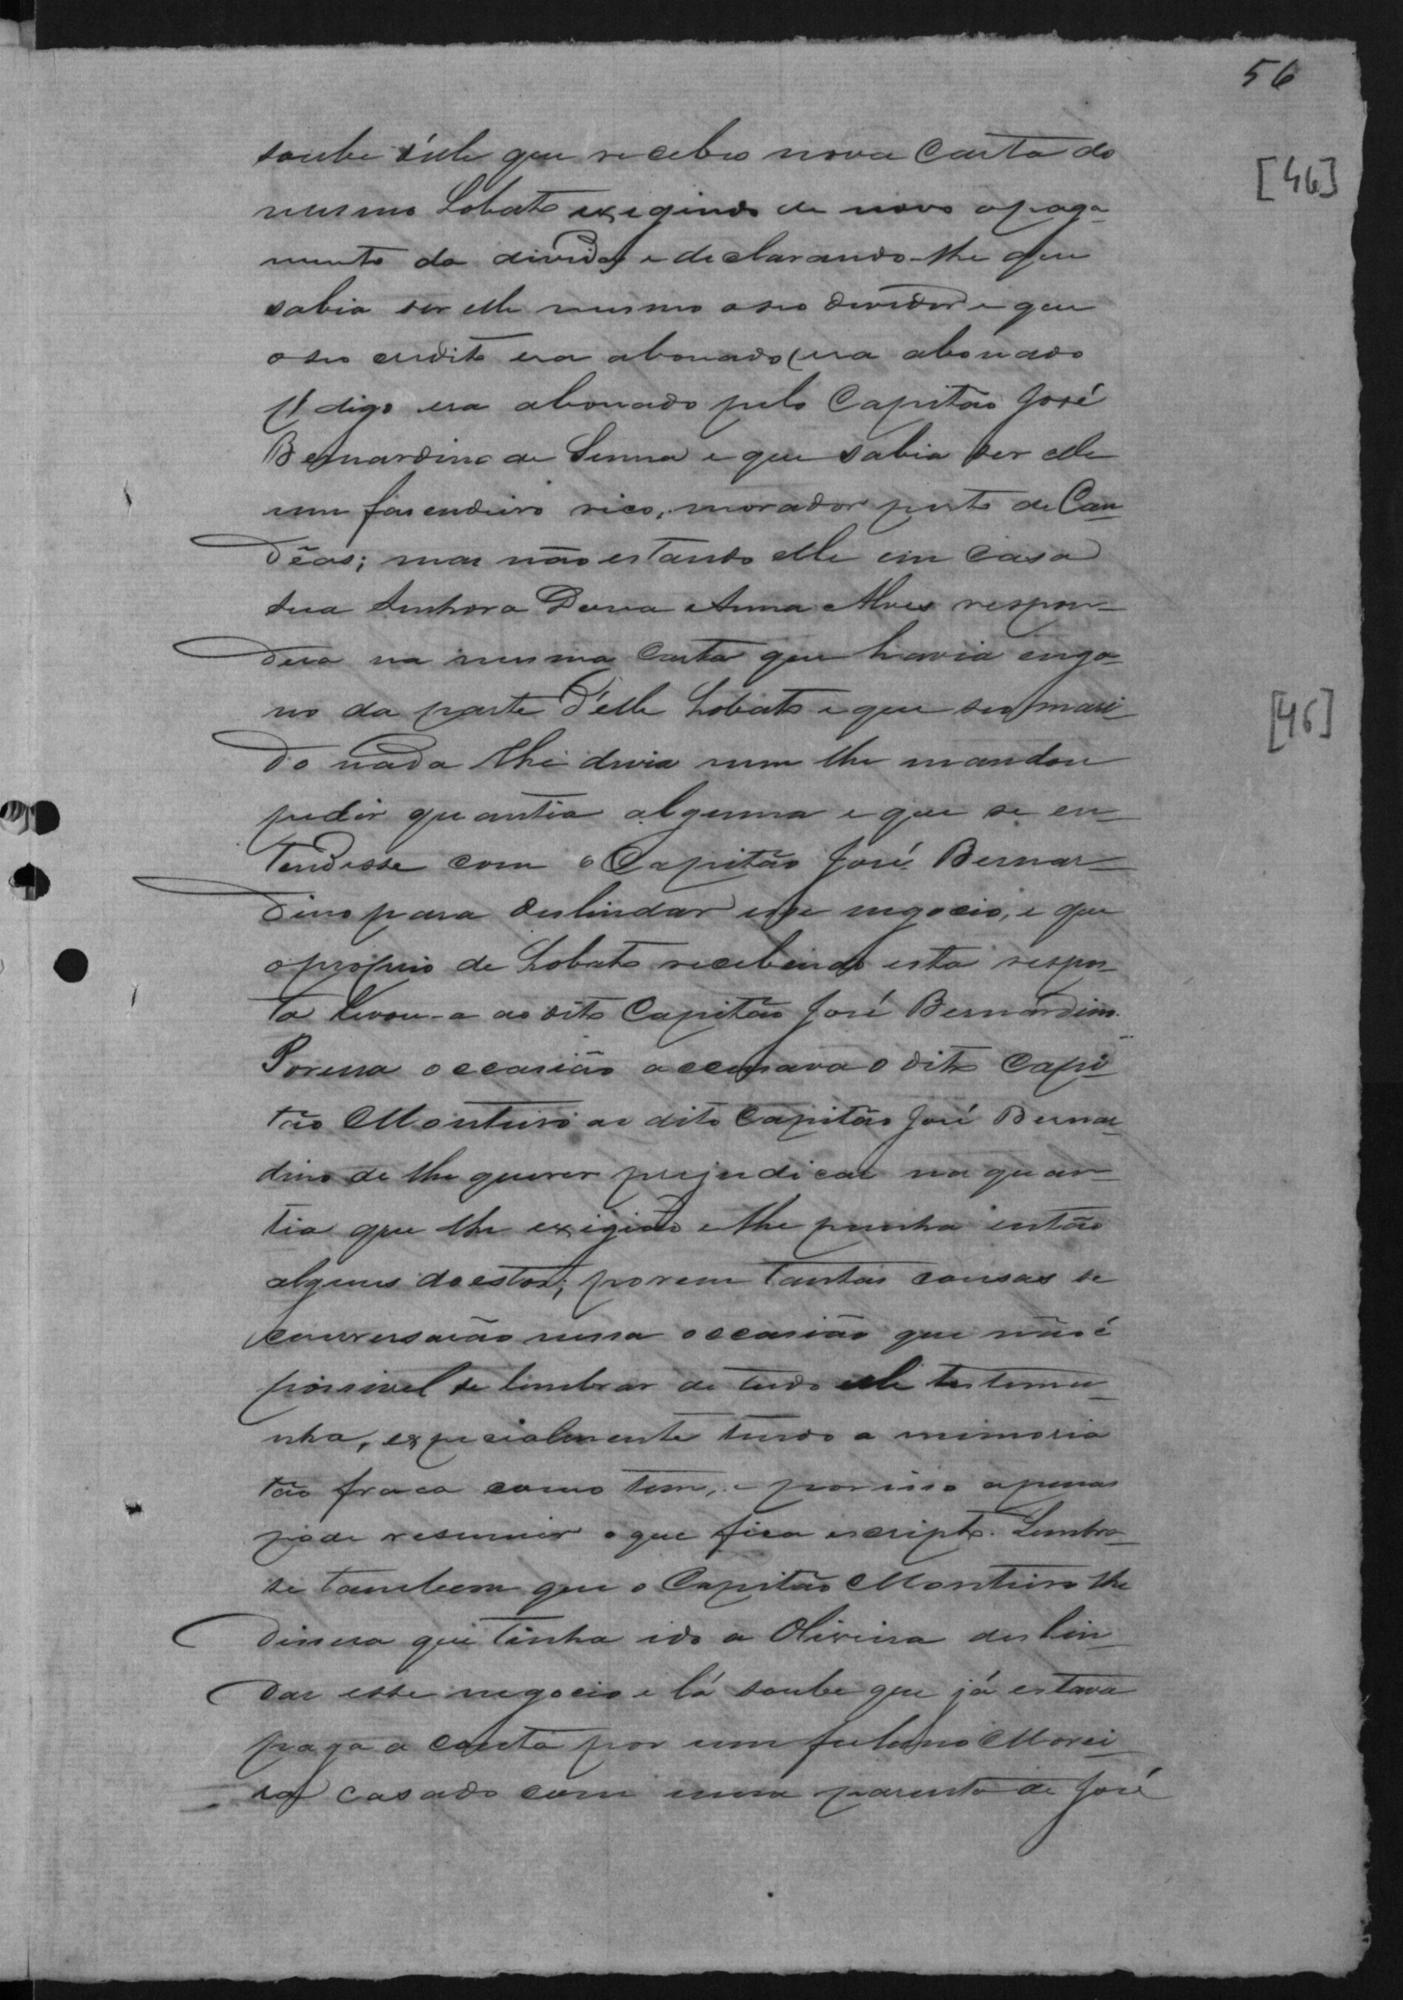 56
soube d'elle que recebeo nova carta do
[46]
mesmo Lobato exigindo de novo o paga-
mento da divida e declarando-lhe que
sabia ser elle mesmo o seo devedor e que
o seo credito era abonado (era abonado
digo era abonado pelo Capitão José
Bernardino de Senna e que sabia ser elle
um fasendeiro rico, morador perto de Can-
dêas; mas não estando elle em casa
sua Senhora Dona Anna Alves respon-
deu na mesma carta que havia enga-
no da parte d'elle Lobato e que seo mari-
[46]
do nada lhe devia nem lhe mandou
pedir quantia alguma e que se en-
tendesse com o Capitão José Bernar-
dino para deslindar esse negocio, e que
o proprio de Lobato recebendo esta respos-
ta levou-a ao dito Capitão José Bernardino.
Por essa occasião accusava o dito Capi-
tão Monteiro ao dito Capitão José Bernar-
dino de lhe querer prejudicar na quan-
tia que lhe exigião e lhe punha então
alguns doestos; porem tantas cousas se
conversarão nessa occasião que não é
possivel se lembrar de tudo elle testemu-
nha, especialmente tendo a memoria
tão fraca como tem, e por isso apenas
pode resumir o que fica escripto. Lembra-
se tambem que o Capitão Monteiro lhe
dissera que tinha ido a Oliveira deslin-
dar esse negocio e lá soube que já estava
paga a conta por um fulano Morei-
ra casado com uma parenta de José